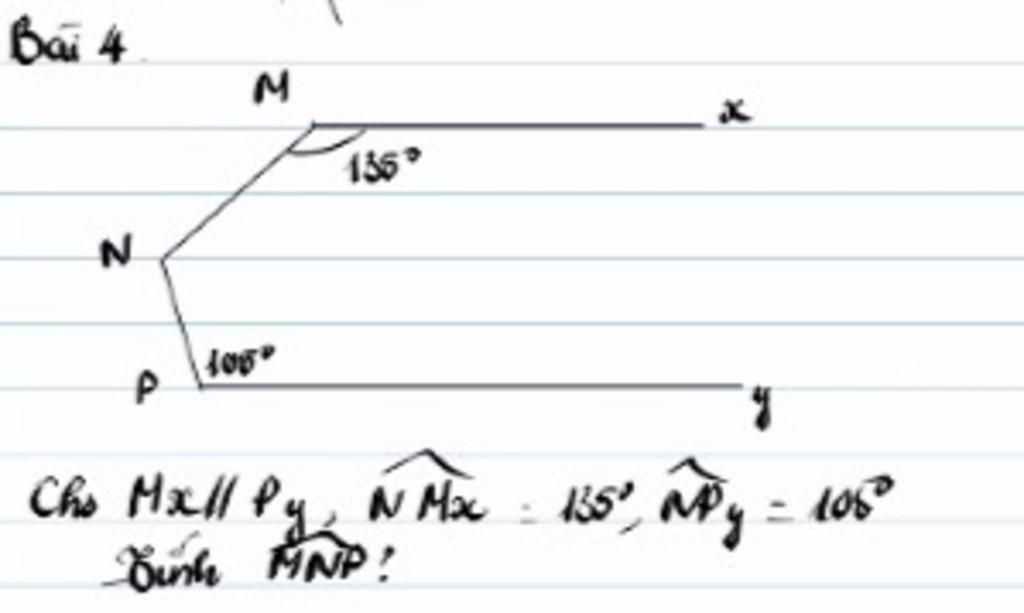 Bài 4
M
x
135°
N
105°
P
y
Cho Mx // Py, NMx = 135°, NPy = 105°
Tính MNP!